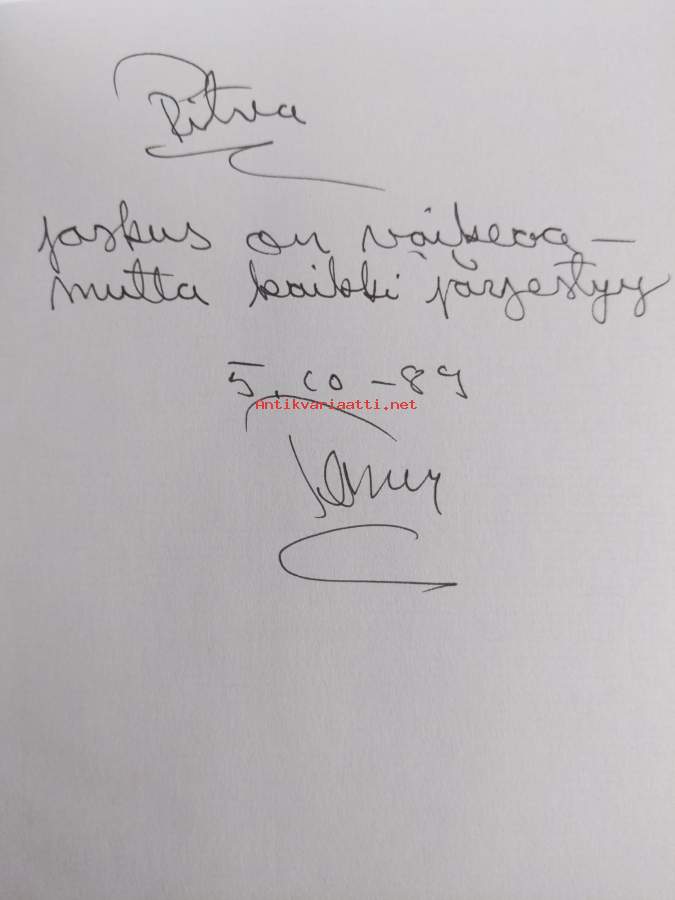 Ritva
joskus on vaikeaa —
mutta kaikki järjestyy
5.10 -89
Antikvariaatti.net